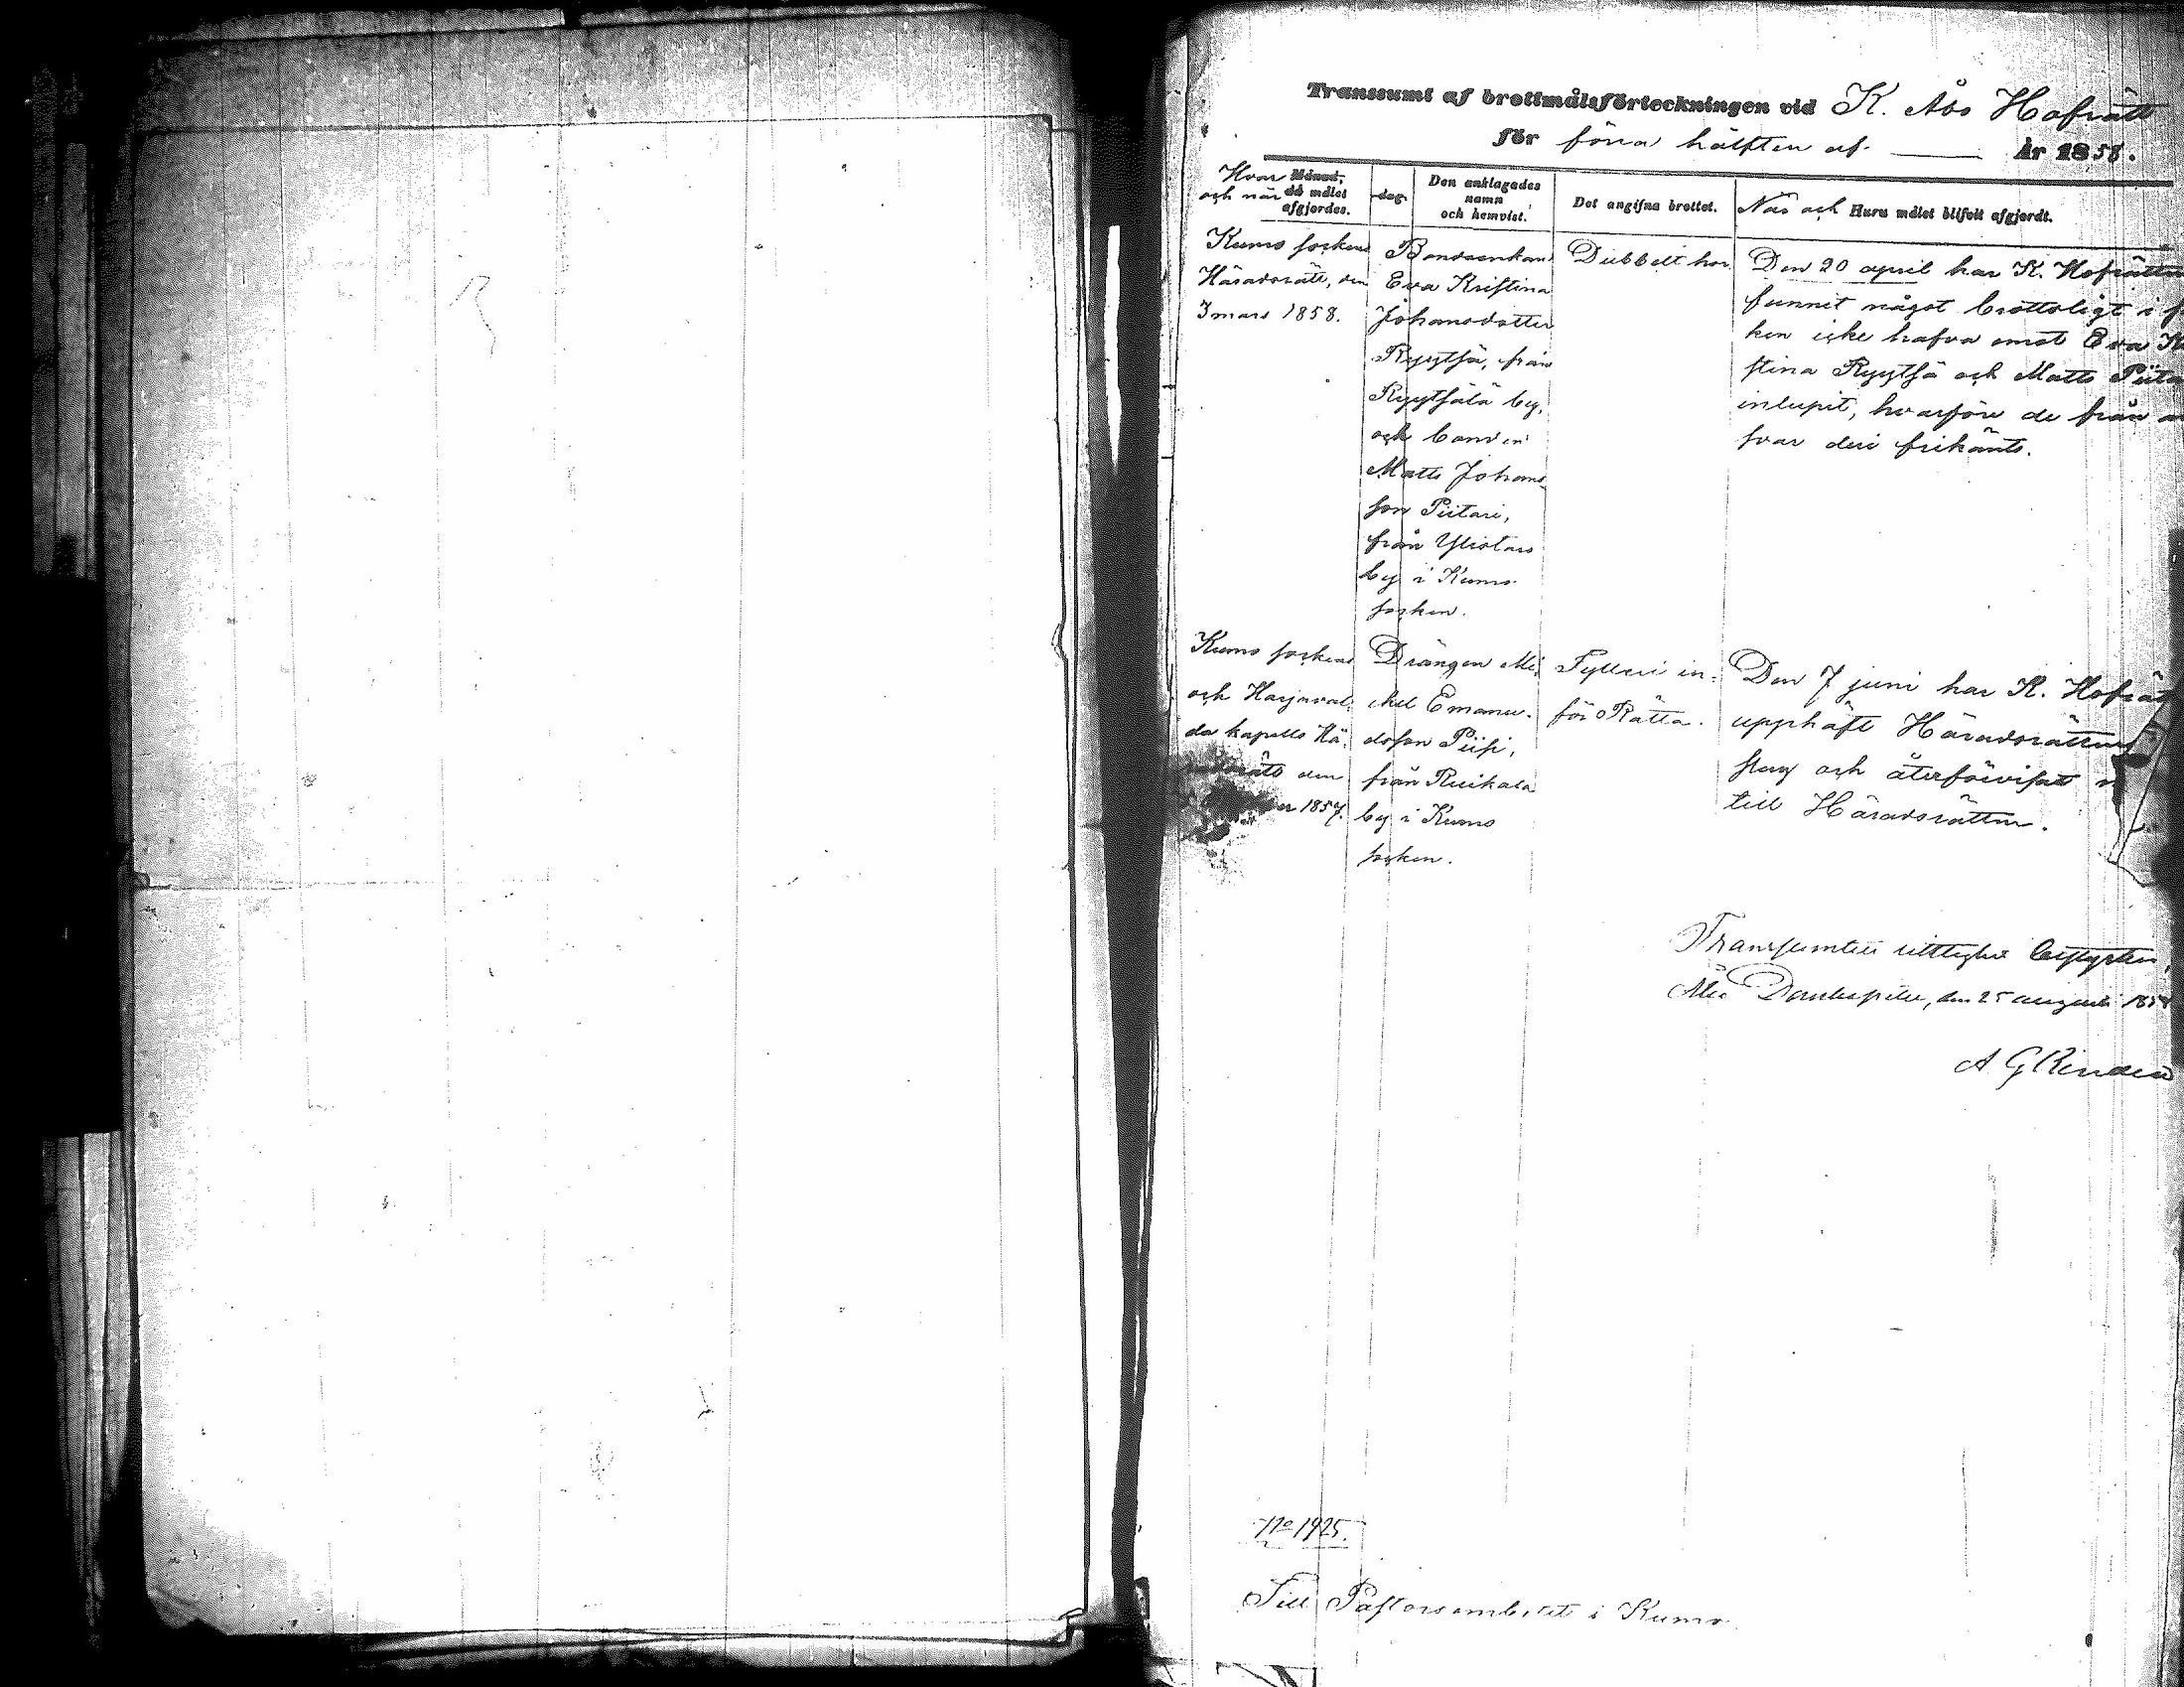 Transsumt af brottmålsförteckningen vid K. Åbo Hofrätt
för förra hälften af År 1858.
Hvar och när Månad, då målet afgjordes.
dag.
Den anklagades namn och hemvist.
Det angifna brottet.
När och Huru målet blifvit afgjordt.
Kumo sockens
Häradsrätt, den
3 mars 1858.
Bondeenkan
Eva Kristina
Johansdotter
Ryytsä, från
Ryytsälä by,
och bonden
Matts Johans-
son Piitari,
från Ylistaro
by i Kumo
socken.
Dubbelt hor
Den 20 april har K. Hofrätten
funnit något brottsligt i
ken icke hafva emot Eva Kri
stina Ryytsä och Matts Piita
inlupit, hvarföre de från an
svar deri frikänts.
Kumo sockens
och Harjaval-
da kapells Hä-
den
1857.
Drängen Mi-
chel Emanu-
elsson Piipi,
från Ruikala
by i Kumo
socken.
Fylleri in-
för Rätta.
Den 7 juni har K. Hofrät
upphäft Häradsrättens
slag och återförvisat
till Häradsrätten.
Transsumtets riktighet bestyrker,
Åbo Domkapitel, den 25 augusti 1858
A G
No 1925.
Till Pastorsembetet i Kumo